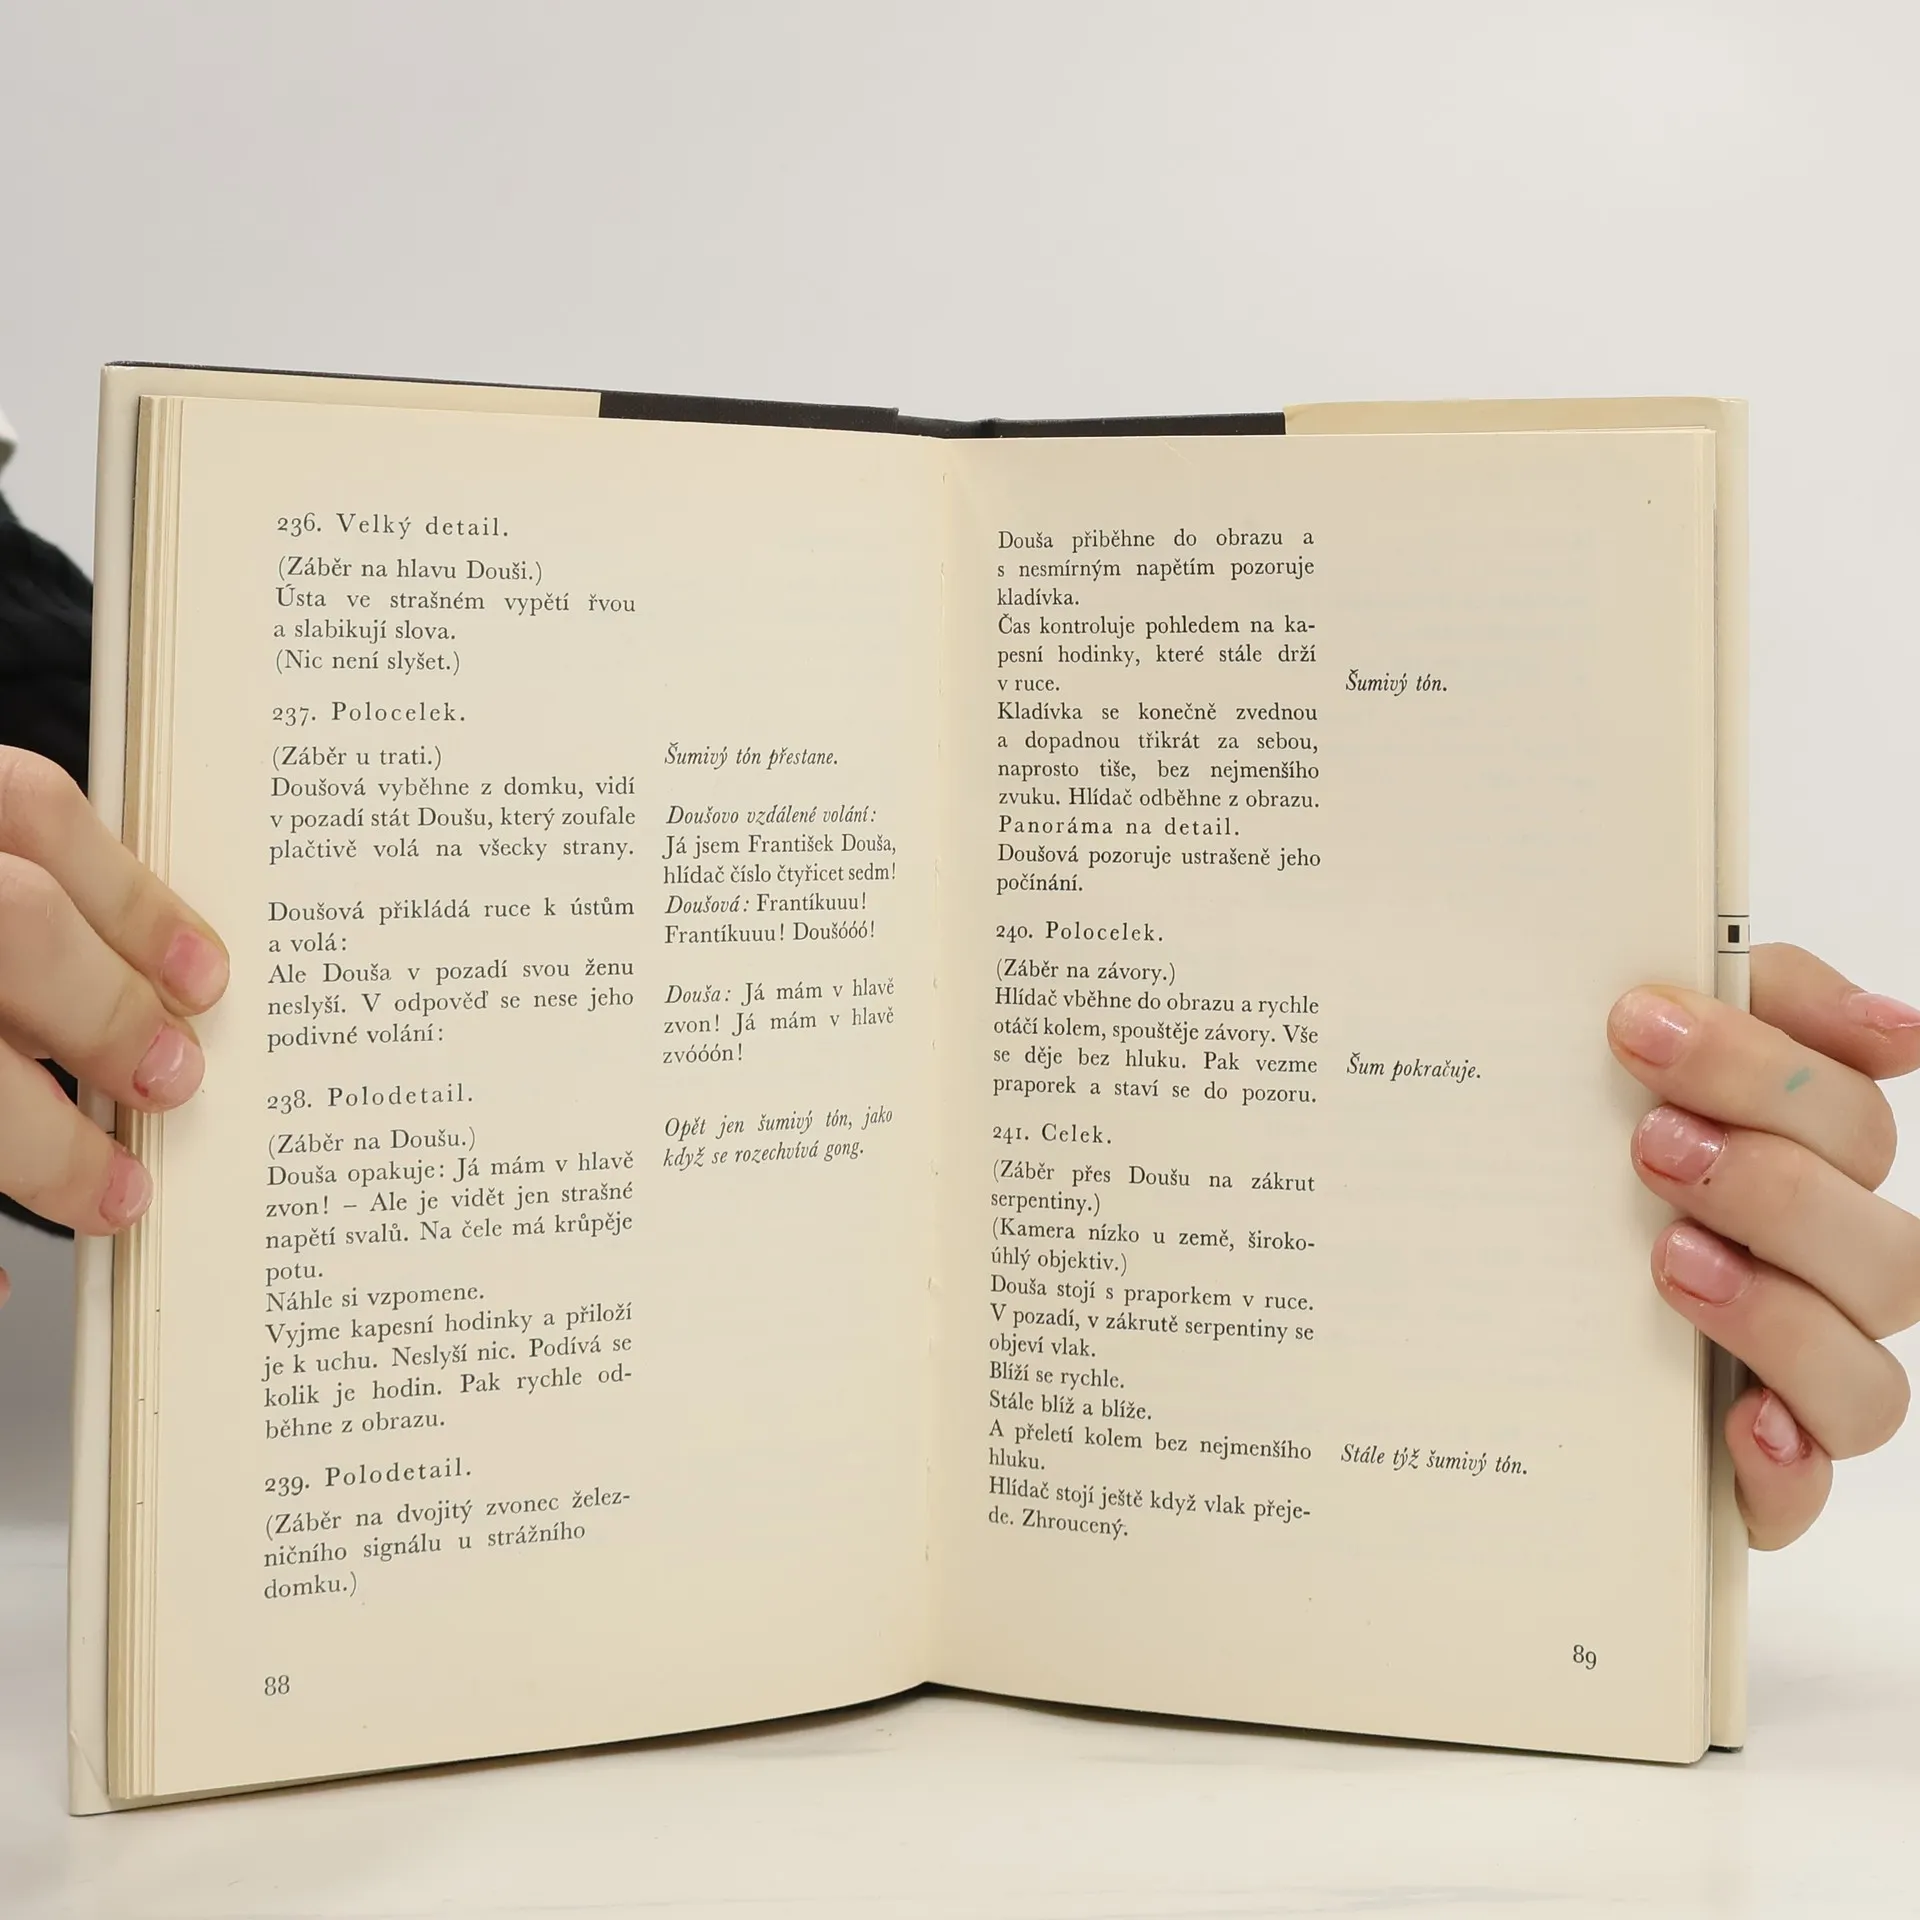 236. Velký detail.
(Záběr na hlavu Douši.)
Ústa ve strašném vypětí řvou
a slabikují slova.
(Nic není slyšet.)
237. Polocelek.
(Záběr u trati.)
Doušová vyběhne z domku, vidí
v pozadí stát Doušu, který zoufale
plačtivě volá na všecky strany.
Doušová přikládá ruce k ústům
a volá:
Ale Douša v pozadí svou ženu
neslyší. V odpověď se nese jeho
podivné volání:
Šumivý tón přestane.
Doušovo vzdálené volání:
Já jsem František Douša,
hlídač číslo čtyřicet sedm!
Doušová: Frantíkuuu!
Frantíkuuu! Doušóóó!
Douša: Já mám v hlavě
zvon! Já mám v hlavě
zvóóón!
238. Polodetail.
(Záběr na Doušu.)
Douša opakuje: Já mám v hlavě
zvon! – Ale je vidět jen strašné
napětí svalů. Na čele má krůpěje
potu.
Náhle si vzpomene.
Vyjme kapesní hodinky a přiloží
je k uchu. Neslyší nic. Podívá se
kolik je hodin. Pak rychle od-
běhne z obrazu.
Opět jen šumivý tón, jako
když se rozechvívá gong.
239. Polodetail.
(Záběr na dvojitý zvonec želez-
ničního signálu u strážního
domku.)
88
Douša přiběhne do obrazu a
s nesmírným napětím pozoruje
kladívka.
Čas kontroluje pohledem na ka-
pesní hodinky, které stále drží
v ruce.
Kladívka se konečně zvednou
a dopadnou třikrát za sebou,
naprosto tiše, bez nejmenšího
zvuku. Hlídač odběhne z obrazu.
Panoráma na detail.
Doušová pozoruje ustrašeně jeho
počínání.
Šumivý tón.
240. Polocelek.
(Záběr na závory.)
Hlídač vběhne do obrazu a rychle
otáčí kolem, spouštěje závory. Vše
se děje bez hluku. Pak vezme
praporek a staví se do pozoru.
Šum pokračuje.
241. Celek.
(Záběr přes Doušu na zákrut
serpentiny.)
(Kamera nízko u země, široko-
úhlý objektiv.)
Douša stojí s praporkem v ruce.
V pozadí, v zákrutě serpentiny se
objeví vlak.
Blíží se rychle.
Stále blíž a blíže.
A přeletí kolem bez nejmenšího
hluku.
Hlídač stojí ještě když vlak přeje-
de. Zhroucený.
Stále týž šumivý tón.
89